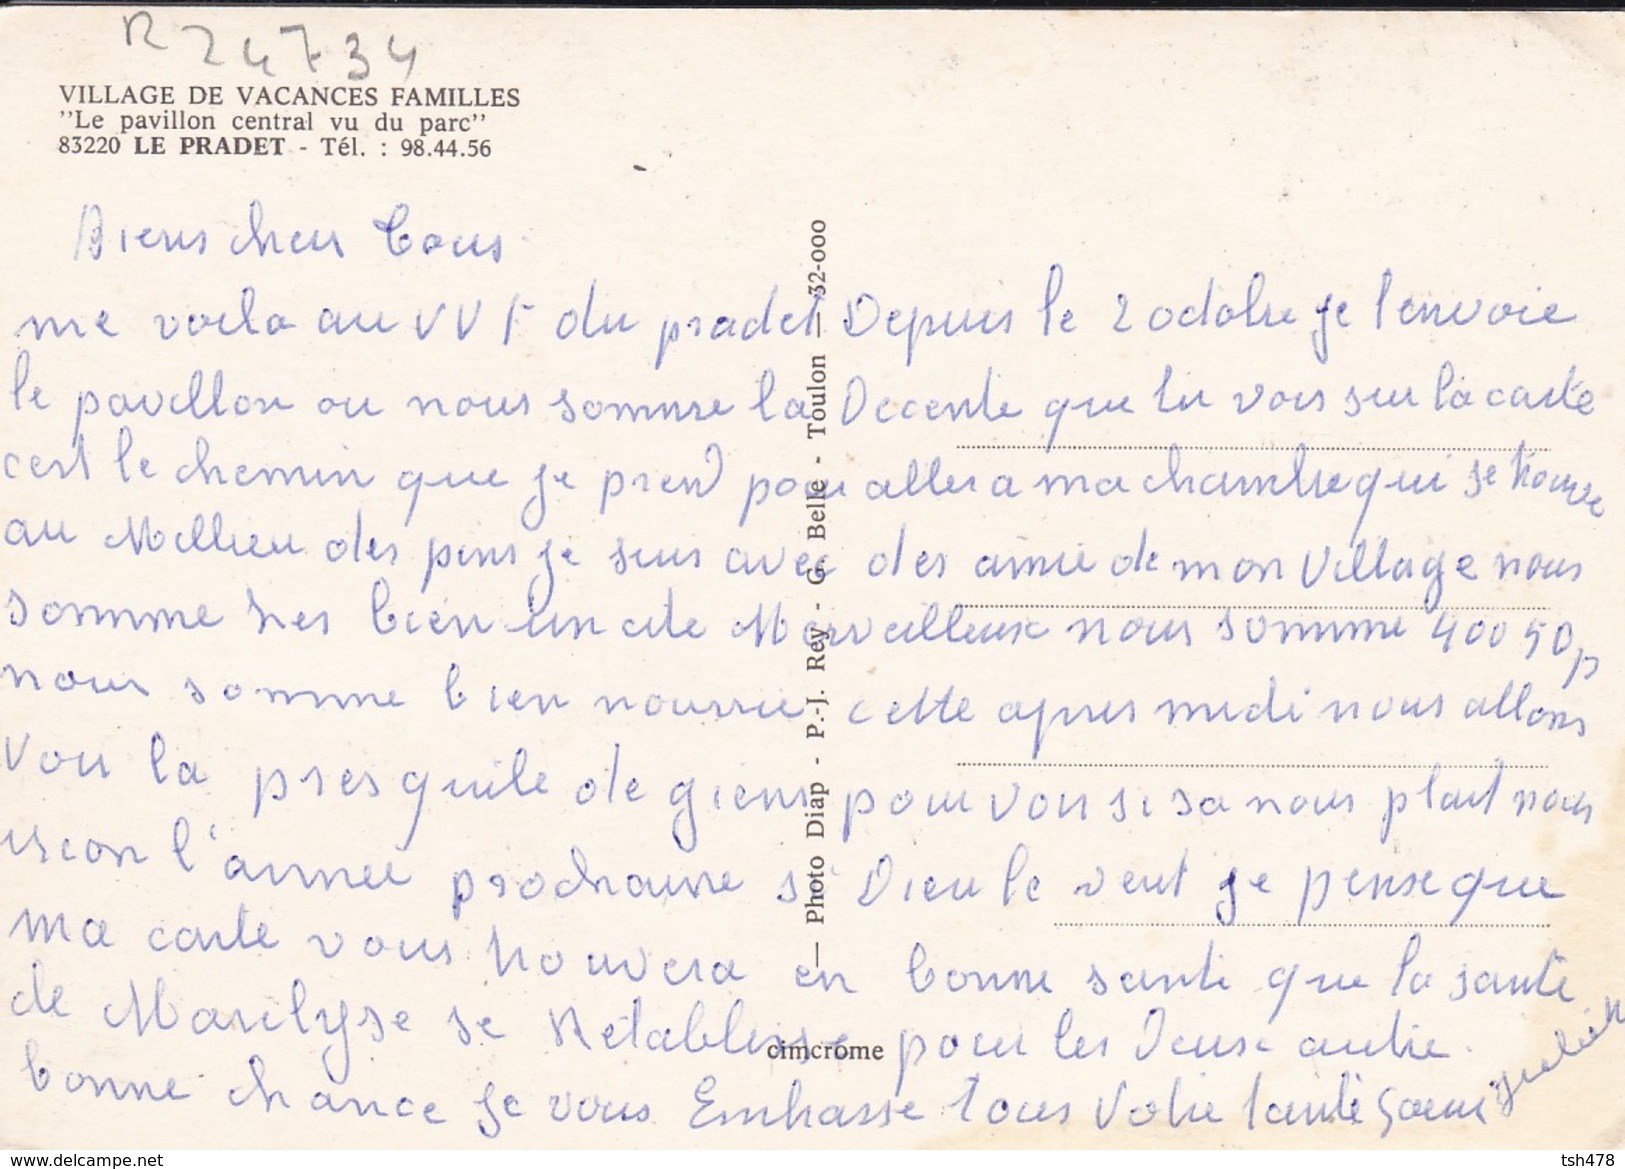 R 24734
VILLAGE DE VACANCES FAMILLES
"Le pavillon central vu du parc"
83220 LE PRADET - Tél. : 98.44.56
Biens cher tous
me voila au VVF du pradet Depuis le 2 octobre je t'envoie
le pavillon ou nous somme la Decente que tu vois sur la carte
cest le chemin que je prend pour aller a ma chambre qui se trouve
au Millieu des pins je suis avec des amie de mon Village nous
somme tres bien un cite Merveilleux nous somme 400 50 p
nous somme bien nourrie cette apres midi nous allons
Voir la presquile de giens pour voir si sa nous plait nous
iron l'année prochaine si Dieu le veut je pense que
ma carte vous trouvera en bonne santé que la santé
de Marilyse se Retablisse pour les Deux autre.
bonne chance je vous Embrasse tous Votre tante Soeur
— Photo Diap - P.-J. Rey - G. Belle - Toulon — 32-000
cimcrome
delcampe.net
tsh478